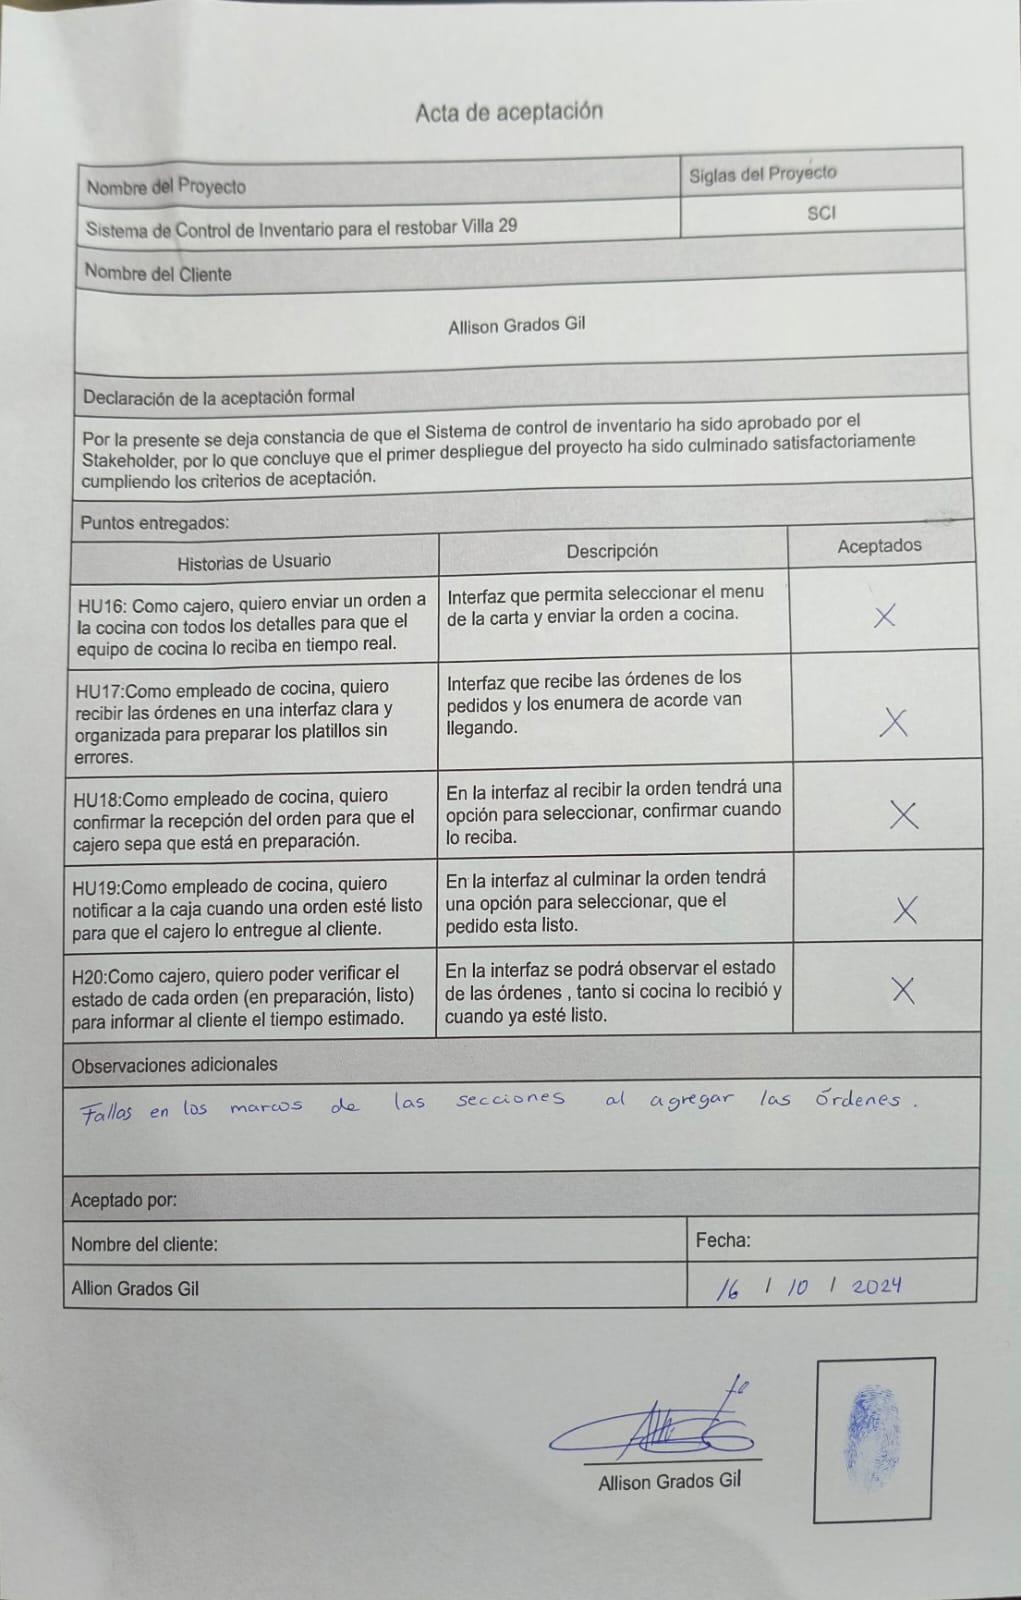 Acta de aceptación
Nombre del Proyecto
Siglas del Proyecto
Sistema de Control de Inventario para el restobar Villa 29
SCI
Nombre del Cliente
Allison Grados Gil
Declaración de la aceptación formal
Por la presente se deja constancia de que el Sistema de control de inventario ha sido aprobado por el
Stakeholder, por lo que concluye que el primer despliegue del proyecto ha sido culminado satisfactoriamente
cumpliendo los criterios de aceptación.
Puntos entregados:
Historias de Usuario
Descripción
Aceptados
HU16: Como cajero, quiero enviar un orden a
la cocina con todos los detalles para que el
equipo de cocina lo reciba en tiempo real.
Interfaz que permita seleccionar el menu
de la carta y enviar la orden a cocina.
X
HU17:Como empleado de cocina, quiero
recibir las órdenes en una interfaz clara y
organizada para preparar los platillos sin
errores.
Interfaz que recibe las órdenes de los
pedidos y los enumera de acorde van
llegando.
X
HU18:Como empleado de cocina, quiero
confirmar la recepción del orden para que el
cajero sepa que está en preparación.
En la interfaz al recibir la orden tendrá una
opción para seleccionar, confirmar cuando
lo reciba.
X
HU19:Como empleado de cocina, quiero
notificar a la caja cuando una orden esté listo
para que el cajero lo entregue al cliente.
En la interfaz al culminar la orden tendrá
una opción para seleccionar, que el
pedido esta listo.
X
H20:Como cajero, quiero poder verificar el
estado de cada orden (en preparación, listo)
para informar al cliente el tiempo estimado.
En la interfaz se podrá observar el estado
de las órdenes , tanto si cocina lo recibió y
cuando ya esté listo.
X
Observaciones adicionales
Fallas en los marcos de las secciones al agregar las órdenes.
Aceptado por:
Nombre del cliente:
Fecha:
Allion Grados Gil
16 / 10 / 2024
Allison Grados Gil